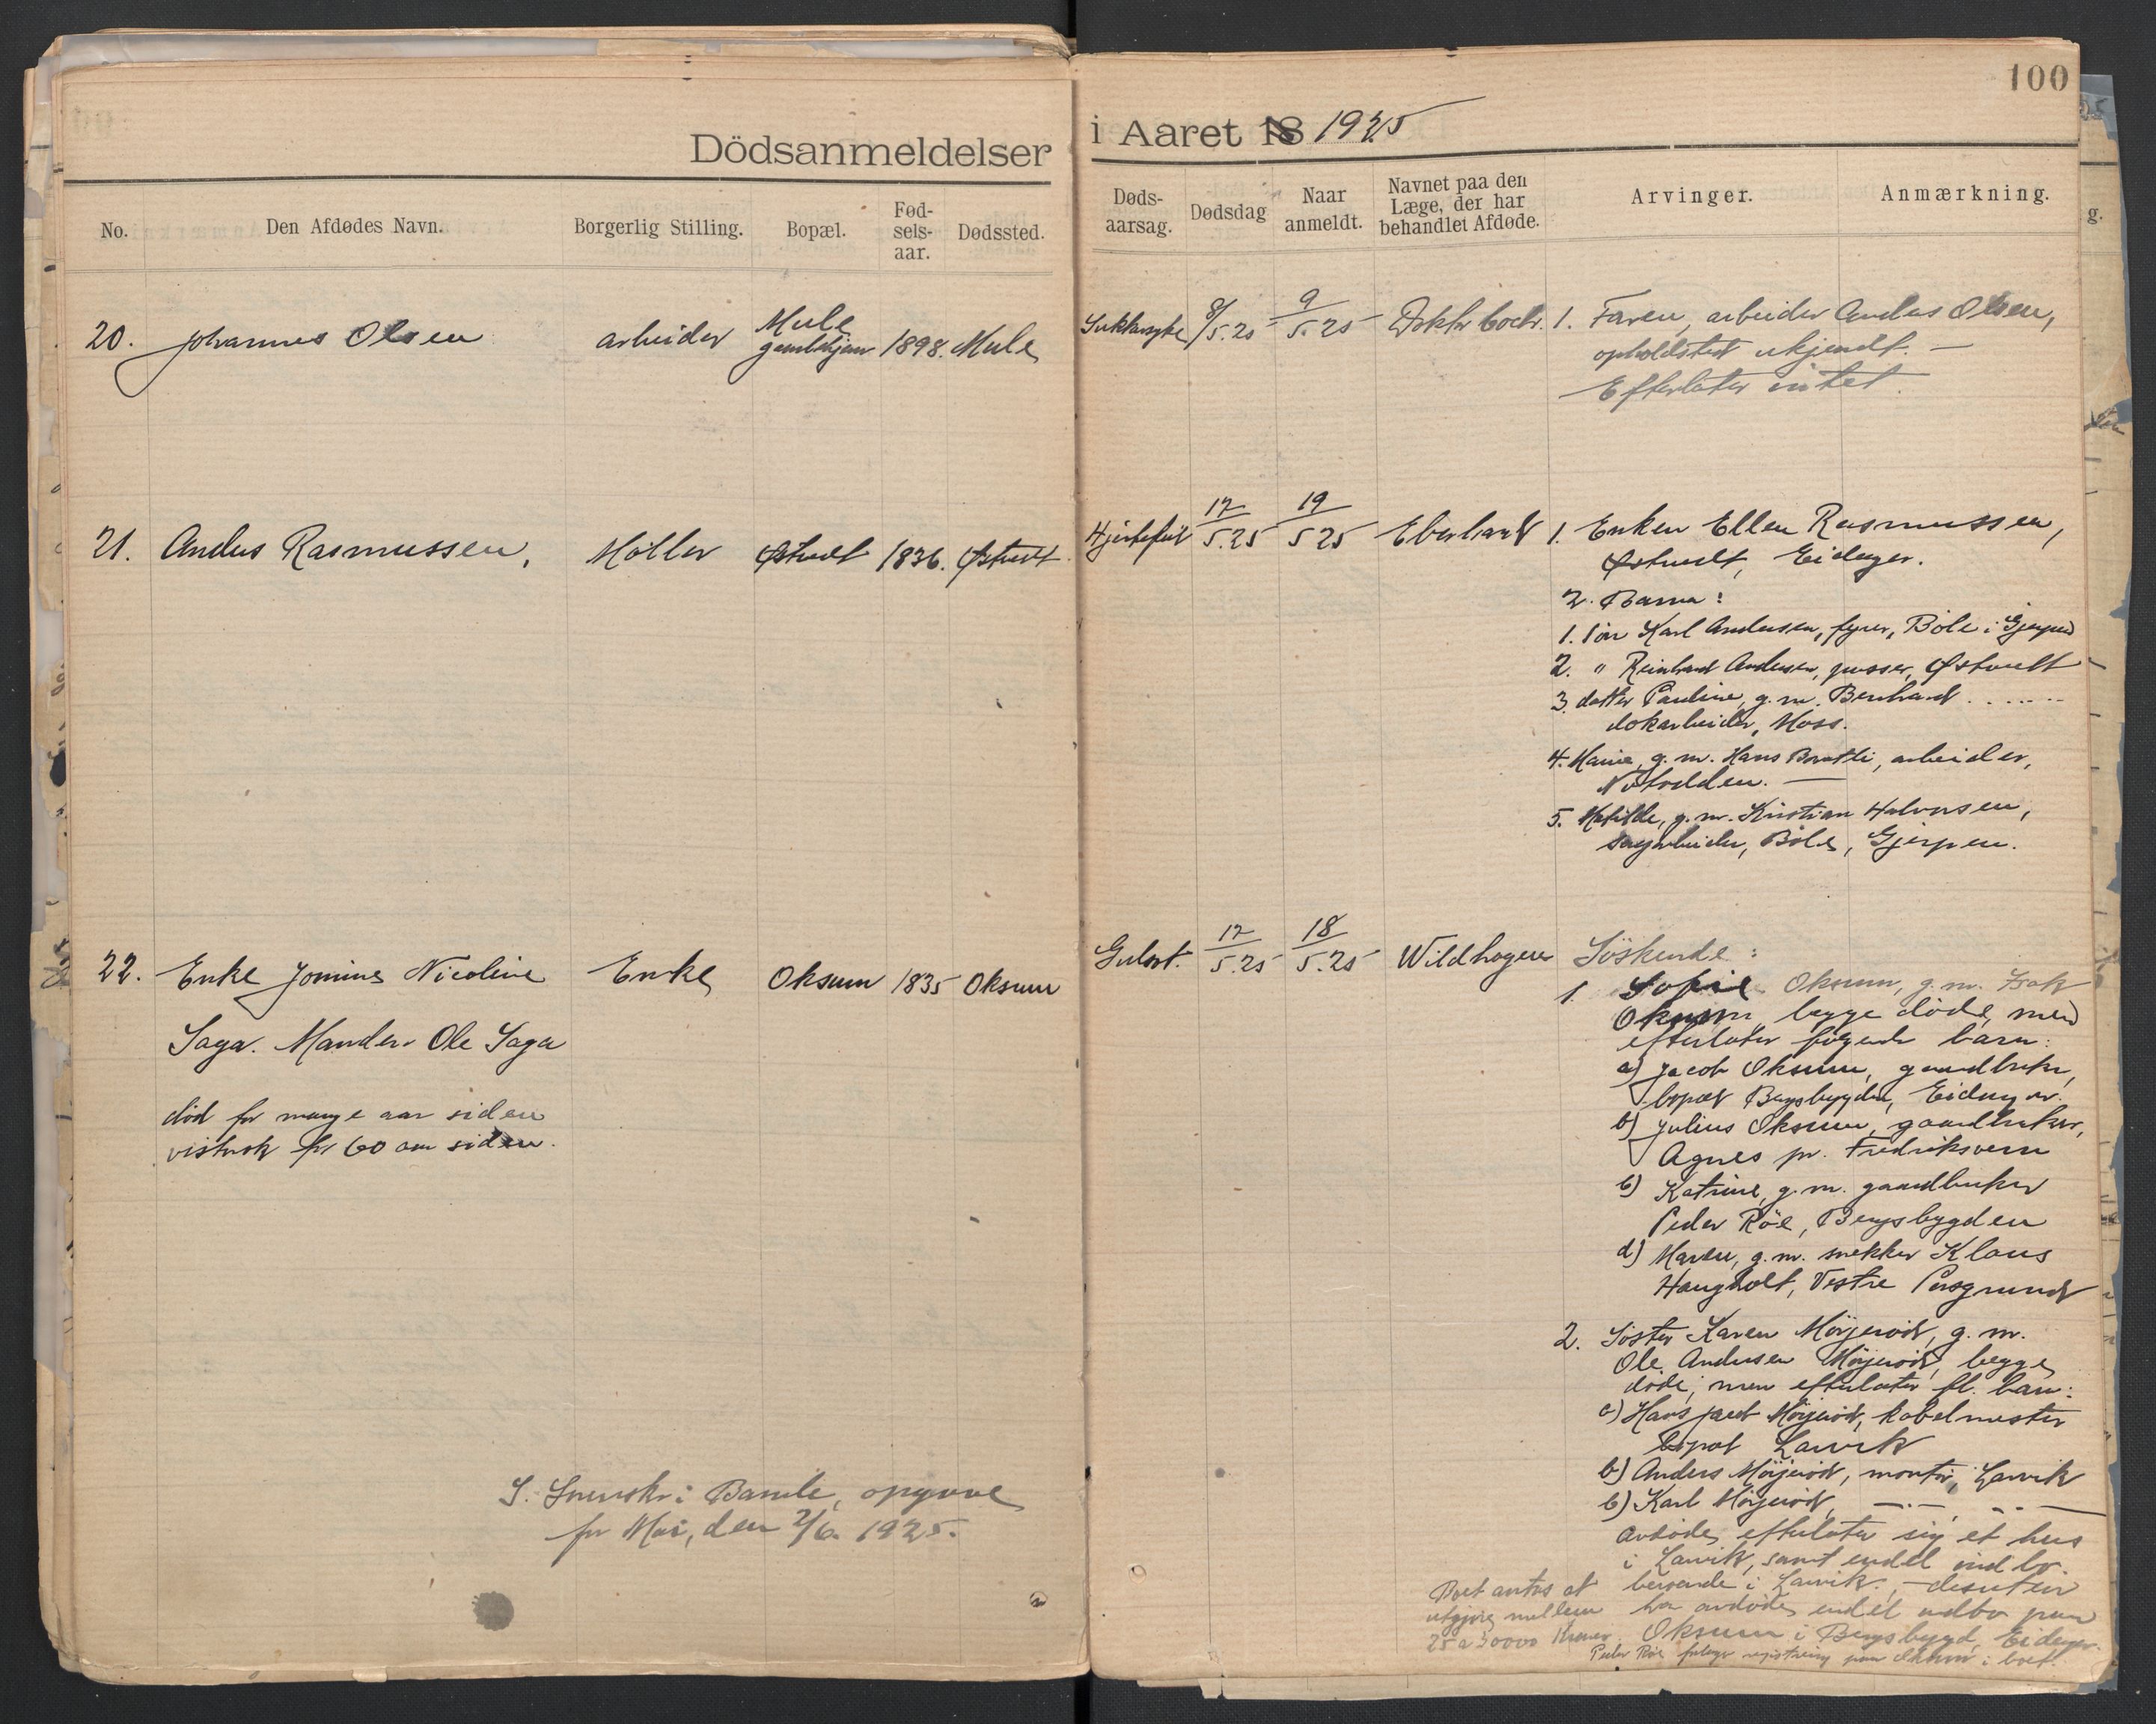 100
Dödsanmeldelser i Aaret 18 1925
No. Den Afdødes Navn. Borgerlig Stilling. Bopæl. Fød-sels-aar. Dødssted. Døds-aarsag. Dødsdag Naar anmeldt. Navnet paa den Læge, der har behandlet Afdøde. Arvinger. Anmærkning.
20. Johannes Olsen arbeider Mule gamlehjem 1898. Mule
Sukkersyke 8/5.25 9/5.25 Doktor 1. Faren, arbeider Anders Olsen,
opholdsted ukjendt. —
Efterlater intet.
21. Anders Rasmussen, Møller Østvedt 1836. Østvedt
Hjertefeil 17/5.25 19/5 25 Eberhard 1. Enken Ellen Rasmussen,
Østvedt, Eidanger.
2. Barna:
1. Søn Karl Andersen, fyrer, Böle i Gjerpen
2. " Reinhard Andersen, Østvedt
3. datter Pauline, g.m. Bernhard . . . . . .
dokarbeider, Moss.
4. Marie, g.m. Hans Bratli, arbeider,
Notodden. —
5. Matilde, g.m. Kristian Halvorsen,
sagarbeider, Böle, Gjerpen.
22. Enke Jomine Nicoline Enke Oksum 1835 Oksum
Saga. Manden Ole Saga
död for mange aar siden
vistnok for 60 aar siden.
Gulsot. 17/5.25 18/5.25 Wildhagen Söskende:
1. Sofie Oksum, g.m. Isak
Oksum begge döde, men
efterlater følgende barn:
a) Jacob Oksum, gaardbruker,
bopæl Bergsbygden, Eidanger.
b) Julius Oksum, gaardbruker,
Agnes pr. Fredriksvern
c) Katrine, g.m. gaardbruker
Peder Röe, Bergsbygden
d) Maren, g.m. snekker Klaus
Haugholt, Vestre Porsgrund
2. Söster Karen Mörjeröd, g.m.
Ole Andersen Mörjeröd, begge
döde, men efterlater fl. barn:
a) Hans Jacob Mörjeröd, kabelmester
bopæl Larvik
b) Anders Mörjeröd, montör, Larvik
c) Karl Mörjeröd, —"— —"—
Avdöde efterlater sig et hus
i Larvik, samt endel indbo.
beroende i Larvik, — desuten
har avdöde endel indbo paa
Oksum i Bergsbygd, Eidanger.
Peder Röe registrering paa Oksum i boet.
Boet antas at
utgjöre mellem
25 a 30000 Kroner
S. Svensk: Bamle, opgave
for Mai, den 2/6. 1925.